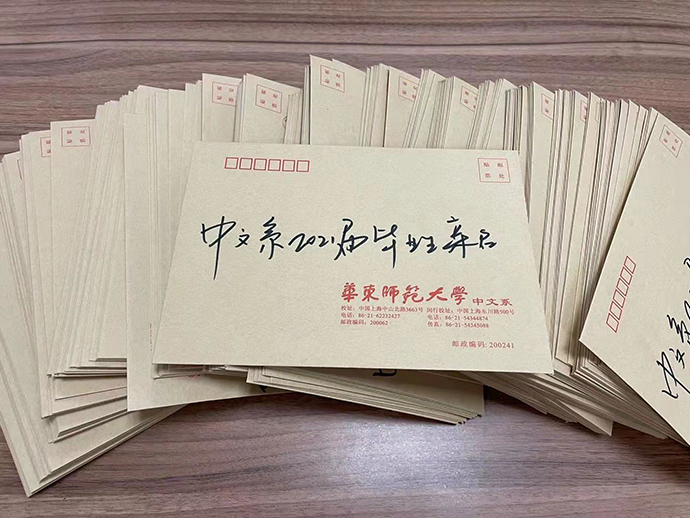 贴 邮
票 处
中文系2021届毕业生亲启
華東師範大學 中文系
校址：中国上海中山北路3663号 闵行校址：中国上海东川路500号
电话：86-21-62232427 电话：86-21-54344874
邮政编码：200062 传真：86-21-54345088
邮政编码: 200241
中文系